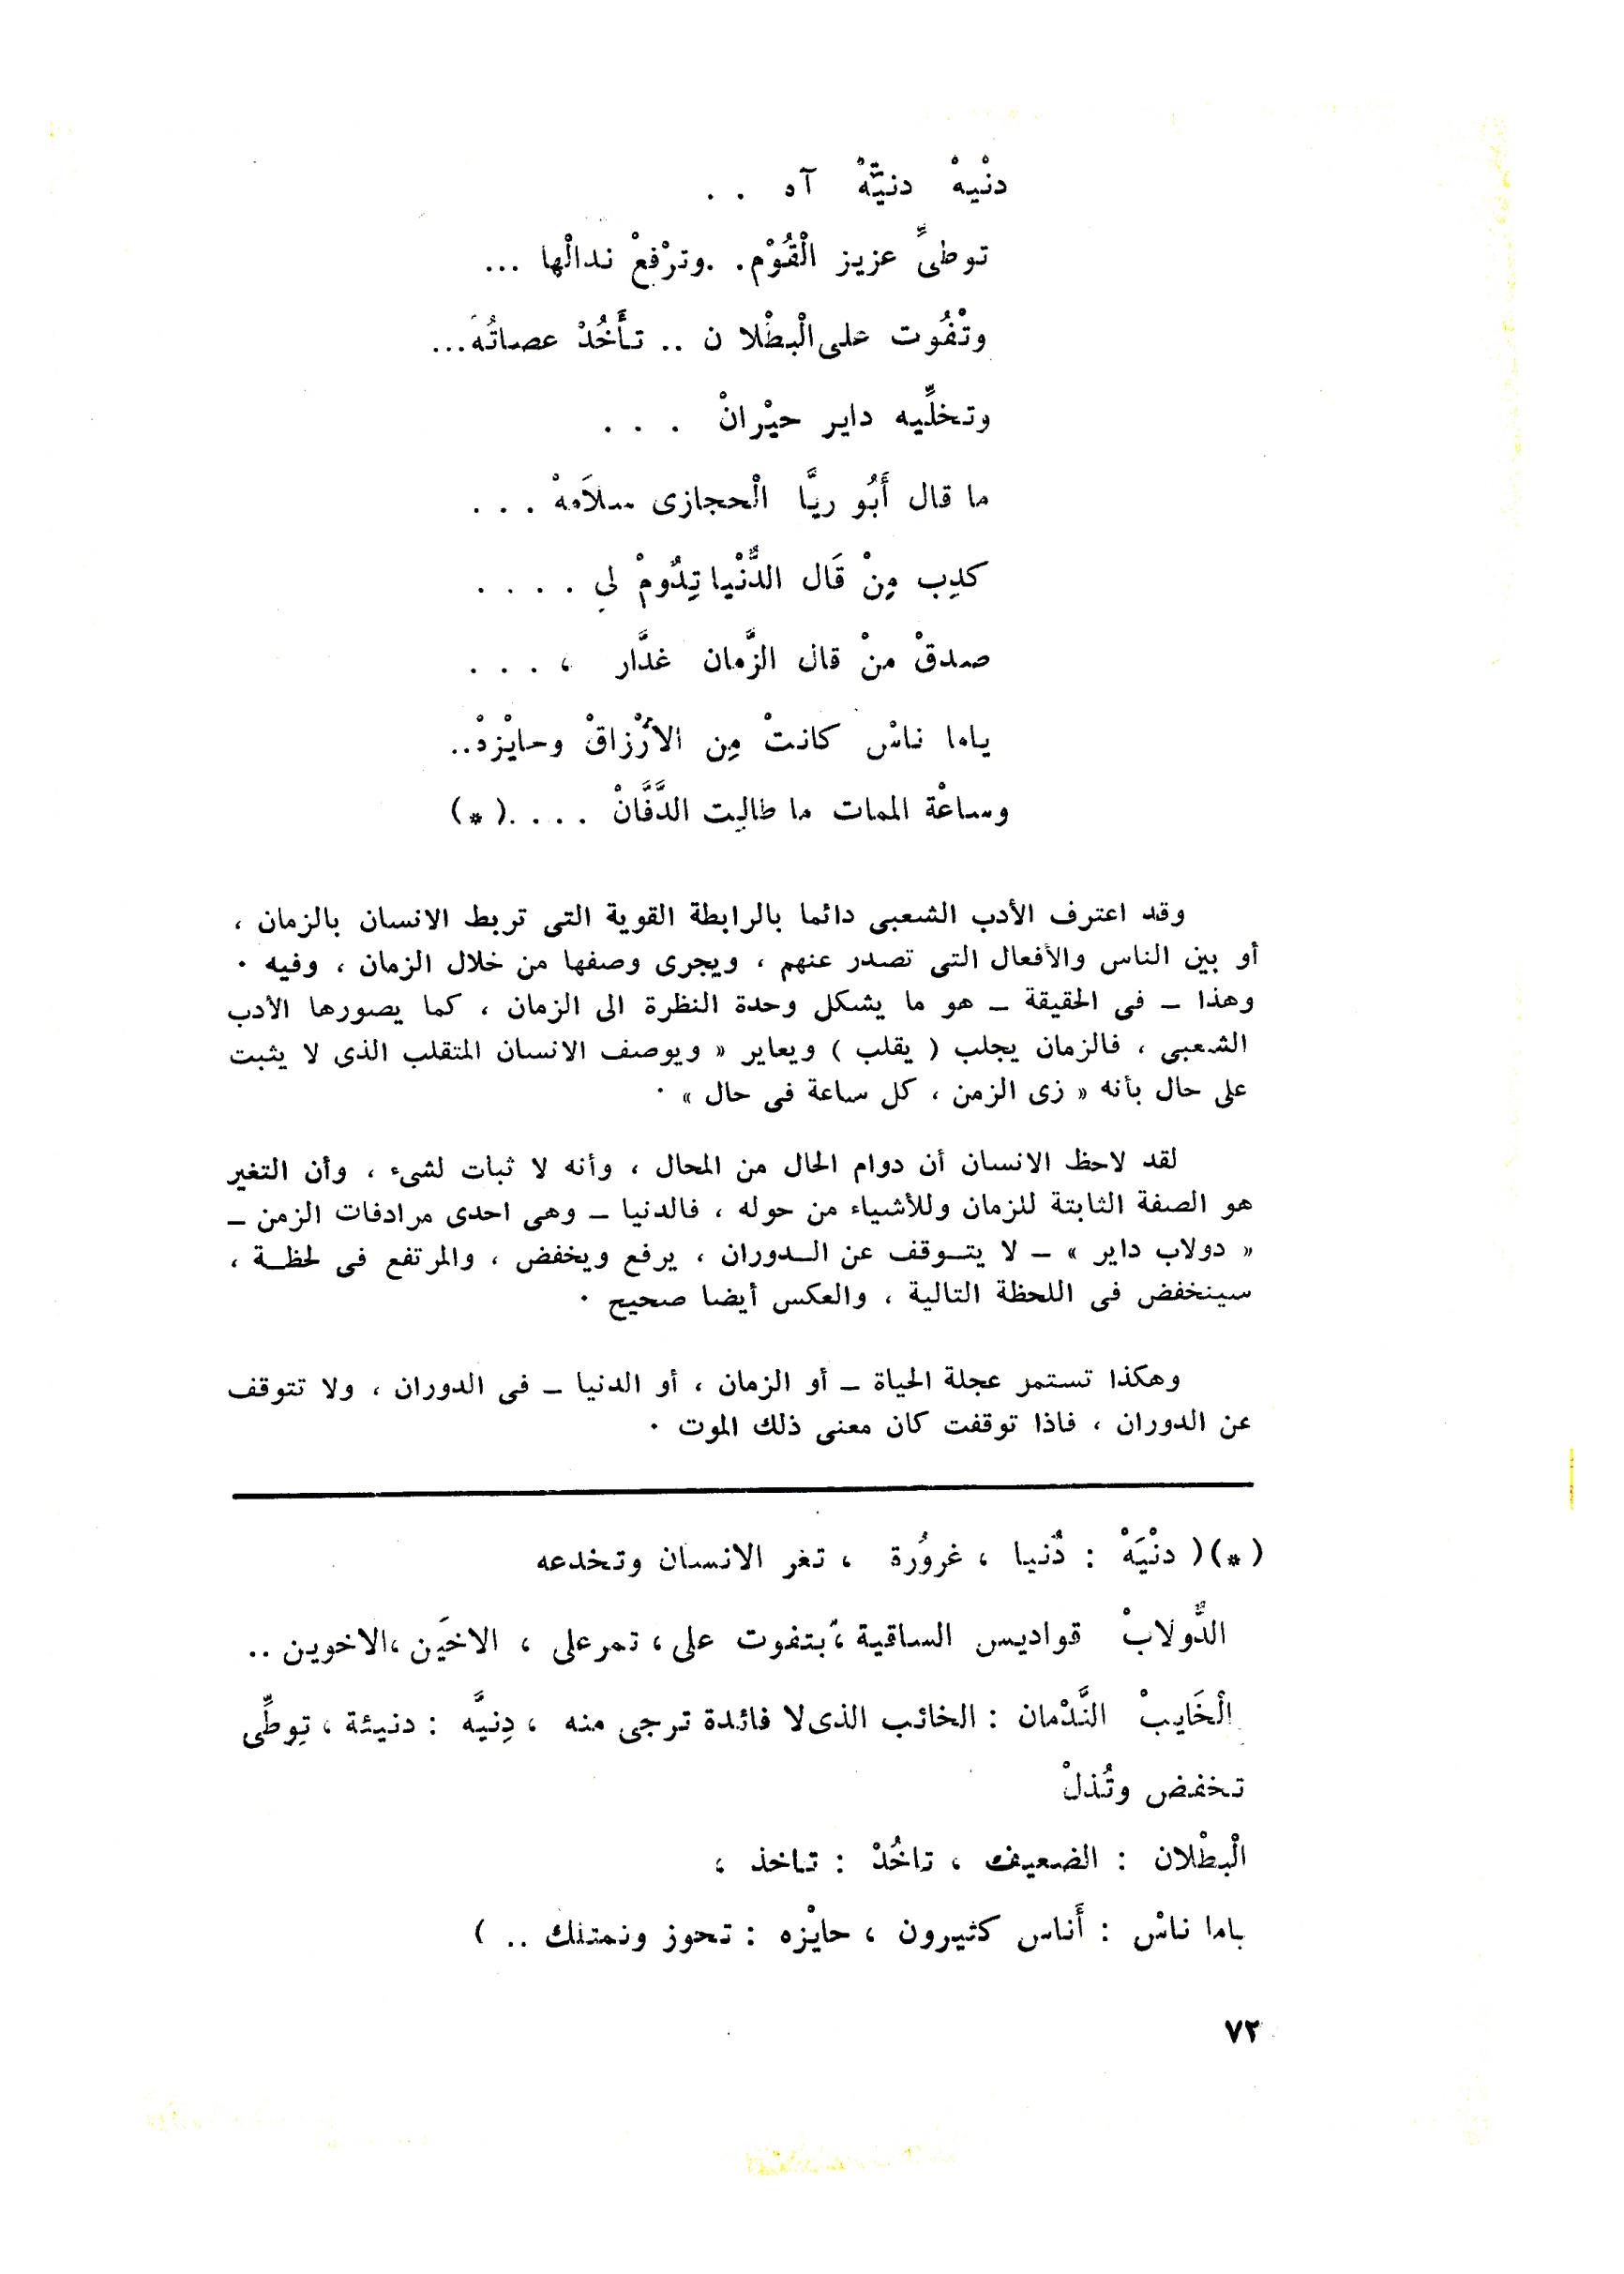 دنْيهْ دنيَّهْ آه . .
توطىِّ عزيز الْقُوْم. .وترْفعْ ندالْها ...
وتْفُوت على الْبطْلا ن .. تأَخُدْ عصاتُهَ...
وتخلِّيه داير حيْرانْ . . .
ما قال أَبُو ريَّا الْحجازى سلاَمهْ . . .
كدِب مِنْ قَال الدُّنْيا تِدُومْ لىِ . . . .
صدقْ منْ قال الزَّمان غدَّار ، . . .
ياما ناسْ كانتْ مِن الأَرْزاقْ وحايْزهْ..
وساعْة الممات ما طالِت الدَّفَّانْ . . . .( * )
وقد اعترف الأدب الشعبى دائما بالرابطة القوية التى تربط الانسان بالزمان ،
أو بين الناس والأفعال التى تصدر عنهم ، ويجرى وصفها من خلال الزمان ، وفيه ٠
وهذا – فى الحقيقة – هو ما يشكل وحدة النظرة الى الزمان ، كما يصورها الأدب
الشعبى ، فالزمان يجلب ( يقلب ) ويعاير « ويوصف الانسان المتقلب الذى لا يثبت
على حال بأنه « زى الزمن ، كل ساعة فى حال » ٠
لقد لاحظ الانسان أن دوام الحال من المحال ، وأنه لا ثبات لشىء ، وأن التغير
هو الصفة الثابتة للزمان وللأشياء من حوله ، فالدنيا – وهى احدى مرادفات الزمن –
« دولاب داير » – لا يتــوقف عن الــدوران ، يرفع ويخفض ، والمرتفع فى لحظــة ،
سينخفض فى اللحظة التالية ، والعكس أيضا صحيح ٠
وهكذا تستمر عجلة الحياة – أو الزمان ، أو الدنيا – فى الدوران ، ولا تتوقف
عن الدوران ، فاذا توقفت كان معنى ذلك الموت ٠
( * )( دنْيَهْ : دُنيا ، غروُرة ، تغر الانسان وتخدعه
الدُّولابْ قواديس الساقية ، بتفوت على ، تمرعلى ، الاخيَن ،الاخوين ..
الْخَايبْ النَّدْمان : الخائب الذى لا فائدة ترجى منه ، دِنيَّه : دنيئة ، تِوطِّى
تخفض وتُذلْ
الْبطْلان : الضعيف ، تاخُدْ : تاخذ ،
ياما ناسْ : أَناس كثيرون ، حايْزه : تحوز ونمتلك .. )
٧٢